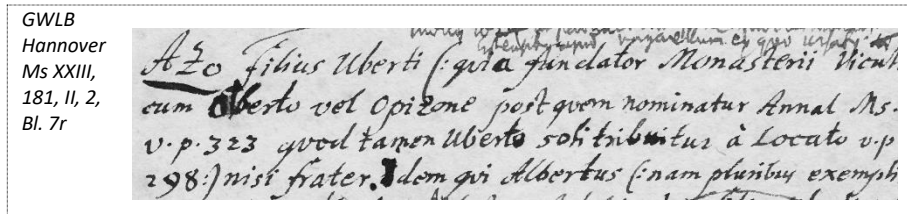 GWLB
Hannover
Ms XXIII,
181, II, 2,
Bl. 7r
AZo filius Uberti (: quia fundator Monasterii Vicul
cum Oberto vel Opizone post quem nominatur Annal Ms.
v. p. 323 quod tamen Uberto soli tribuitur à Locato v. p
298:) nisi frater. Idem qui Albertus (: nam pluribus exempli